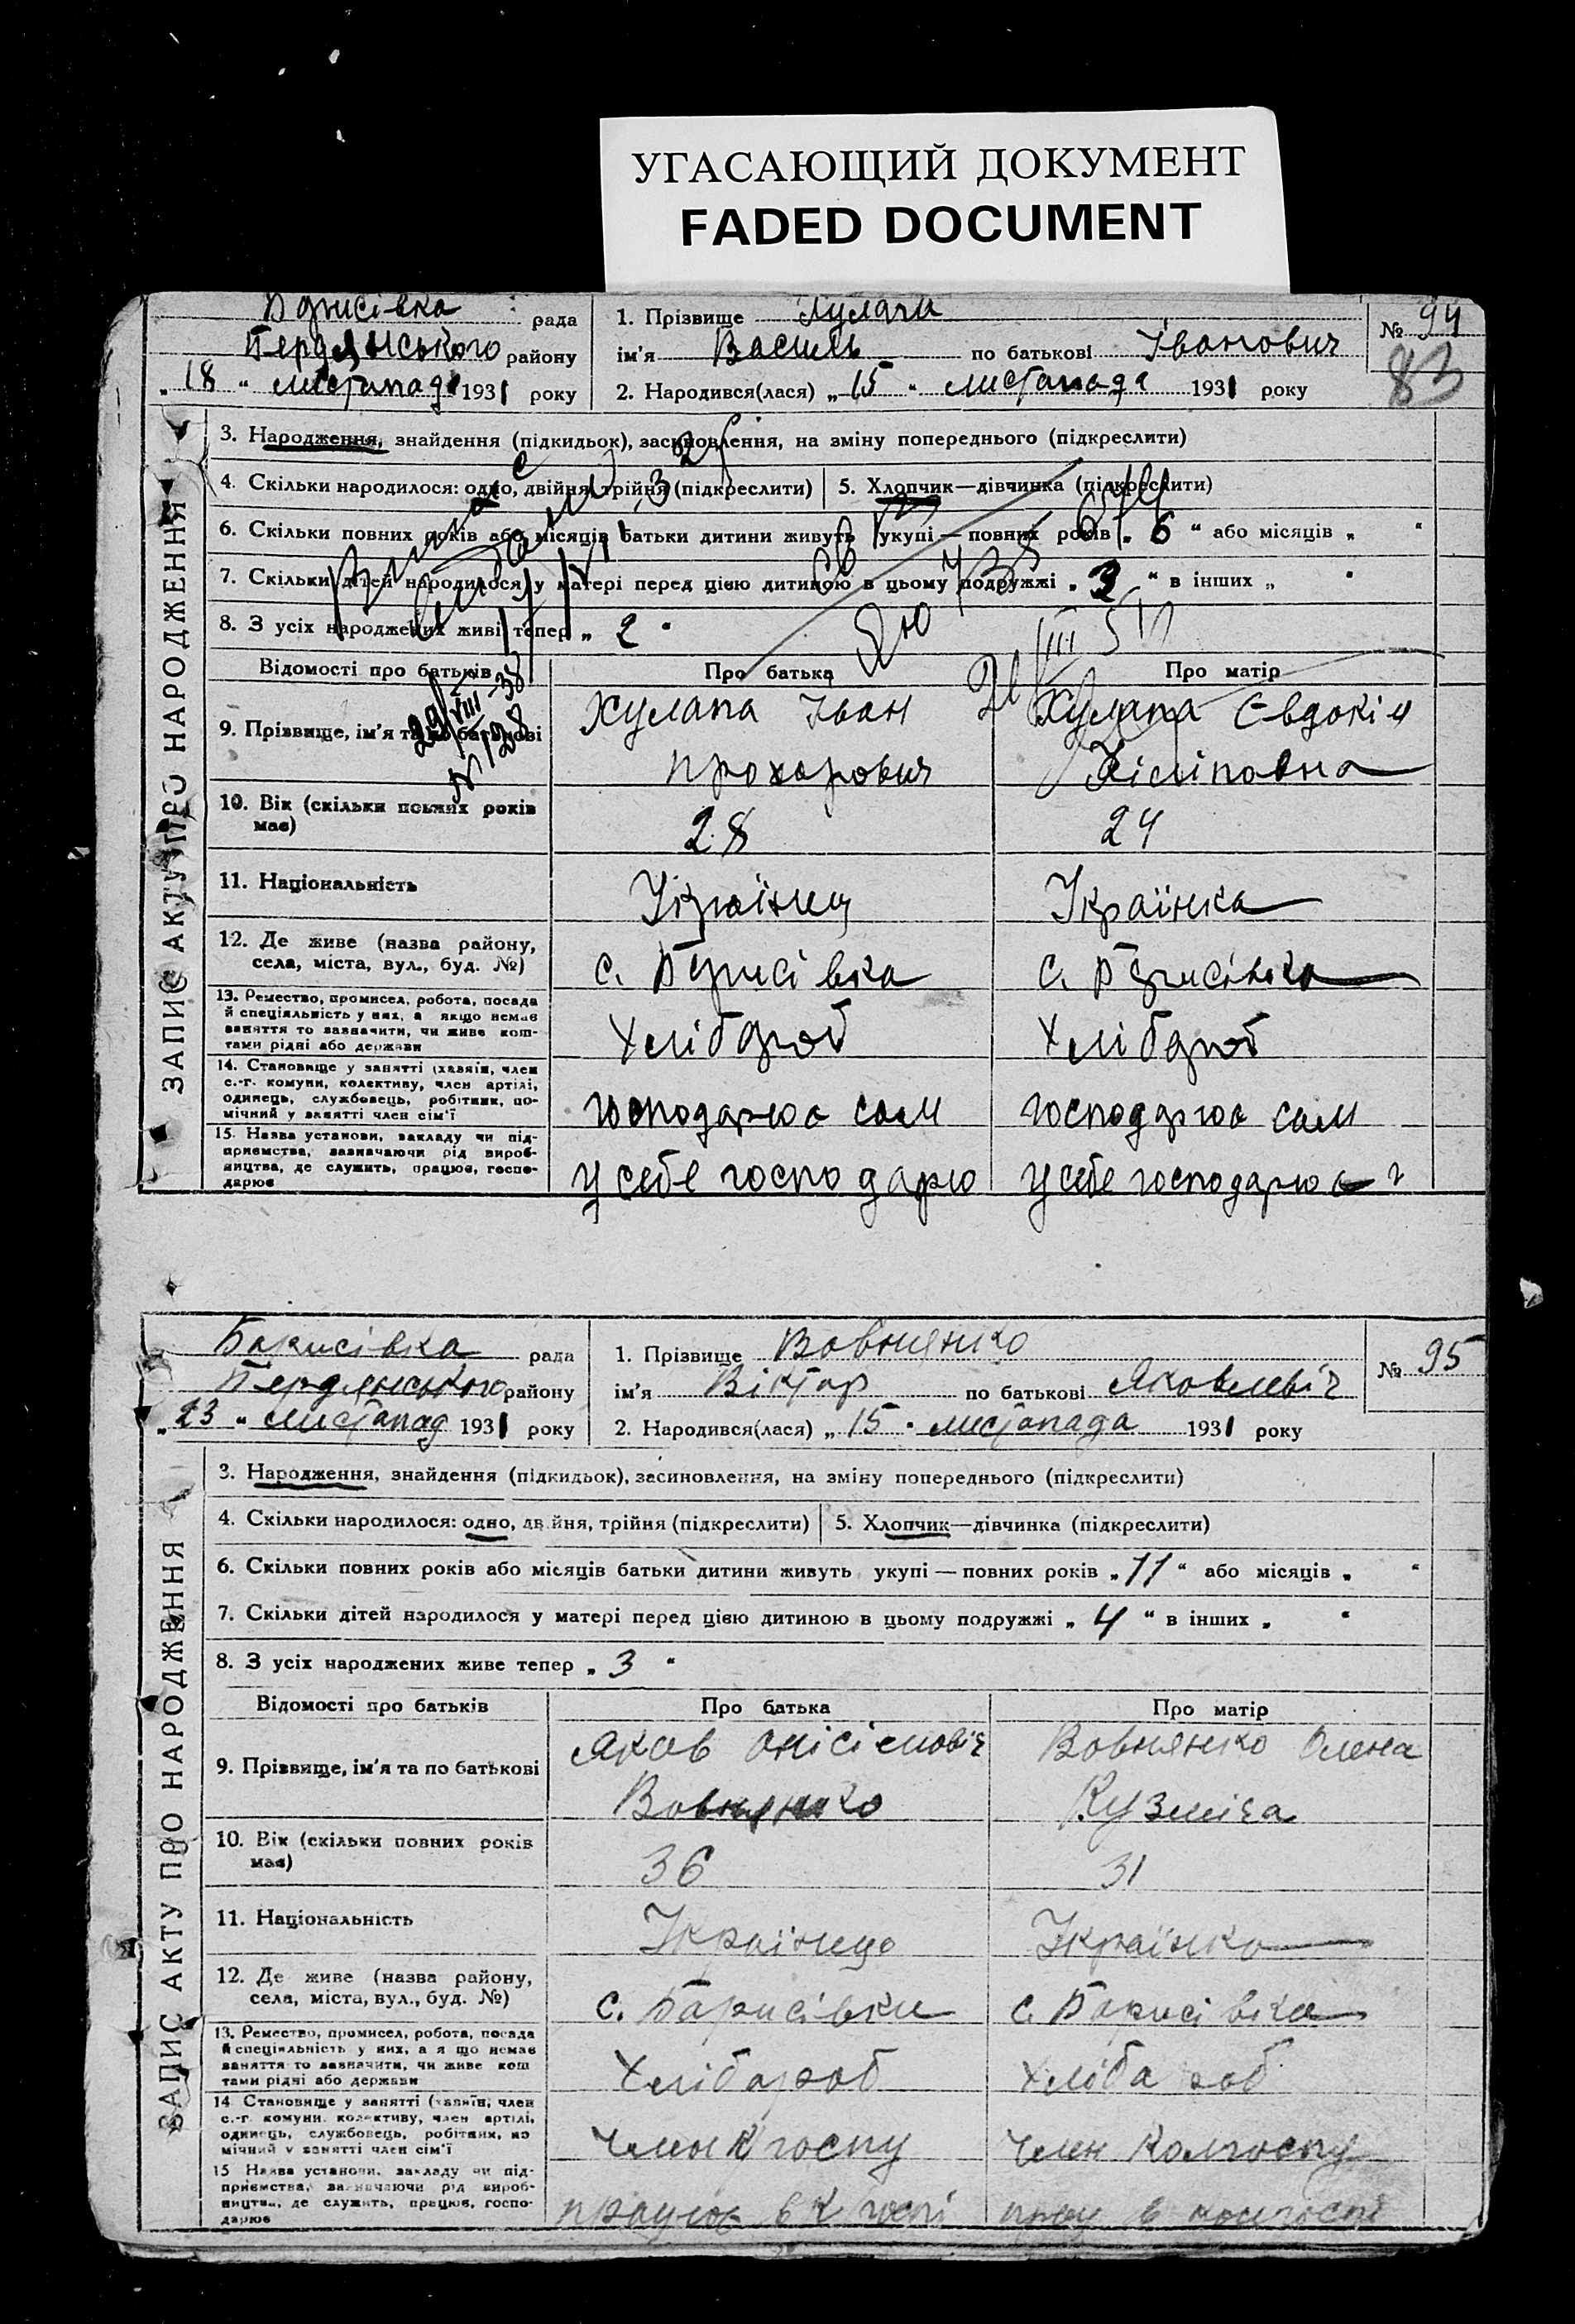 УГАСАЮЩИЙ ДОКУМЕНТ
FADED DOCUMENT
рада
Бердянського району
„ 18 “ листопада 1931 року
1. Прізвище
ім'я Василь по батькові Іванович
2. Народився(лася) „ 15 “ листопада 1931 року
№ 94
83
ЗАПИС АКТУ ПРО НАРОДЖЕННЯ
3. Народження, знайдення (підкидьок), засиновлення, на зміну попереднього (підкреслити)
4. Скільки народилося: одно, двійня, трійня (підкреслити)
5. Хлопчик—дівчинка (підкреслити)
6. Скільки повних років або місяців батьки дитини живуть укупі — повних років „ 6 “ або місяців „ “
7. Скільки дітей народилося у матері перед цією дитиною в цьому подружжі „ “ в інших „ “
8. З усіх народжених живі тепер „ 2 “
29/VIII-38
N 128
Відомості про батьків
Про батька
Про матір
9. Прізвище, ім'я та по батькові
Хулапа Іван
Прохорович
Хулапа Євдокія
10. Вік (скільки повних років має)
28
24
11. Національність
Українец
Українка
12. Де живе (назва району,
села, міста, вул., буд. №)
с. Борисівка
с. Борисівка
13. Ремество, промисел, робота, посада
й спеціяльність у них, а якщо немає
заняття то зазначити, чи живе кош-
тами рідні або держави
Хлібороб
Хлібороб
14. Становище у занятті (хазяїн, член
с.-г. комуни, колективу, член артілі,
одинець, службовець, робітник, по-
мічний у занятті член сім'ї
господарює сам
господарює сам
15. Назва установи, закладу чи під-
приємства, зазначаючи рід вироб-
ництва, де служить, працює, госпо-
дарює
у себе господарю
у себе господарює
Борисівка рада
Бердянського району
„ 23 “ листопад 1931 року
1. Прізвище Вовнянко
ім'я Віктор по батькові Яковлевіч
2. Народився(лася) „ 15 “ листопада 1931 року
№ 95
ЗАПИС АКТУ ПРО НАРОДЖЕННЯ
3. Народження, знайдення (підкидьок), засиновлення, на зміну попереднього (підкреслити)
4. Скільки народилося: одно, двійня, трійня (підкреслити)
5. Хлопчик—дівчинка (підкреслити)
6. Скільки повних років або місяців батьки дитини живуть укупі — повних років „ 11 “ або місяців „ “
7. Скільки дітей народилося у матері перед цією дитиною в цьому подружжі „ 4 “ в інших „ “
8. З усіх народжених живе тепер „ 3 “
Відомості про батьків
Про батька
Про матір
9. Прізвище, ім'я та по батькові
Яков Онісімовіч
Вовнянко
Вовнянко Олена
10. Вік (скільки повних років має)
36
31
11. Національність
Українець
Українка
12. Де живе (назва району,
села, міста, вул., буд. №)
с. Борисівки
с. Борисівка
13. Ремество, промисел, робота, посада
й спеціяльність у них, а якщо немає
заняття то зазначити, чи живе кош
тами рідні або держави
Хлібороб
Хлібороб
14 Становище у занятті (хазяїн, член
с.-г. комуни, колективу, член артілі,
одинець, службовець, робітник, по
мічний у занятті член сім'ї
член к госпу
член колгоспу
15 Назва установи, закладу чи під-
приємства, зазначаючи рід вироб-
ництва, де служить, працює, госпо-
дарює
працює в к госпі
прац в колгоспі